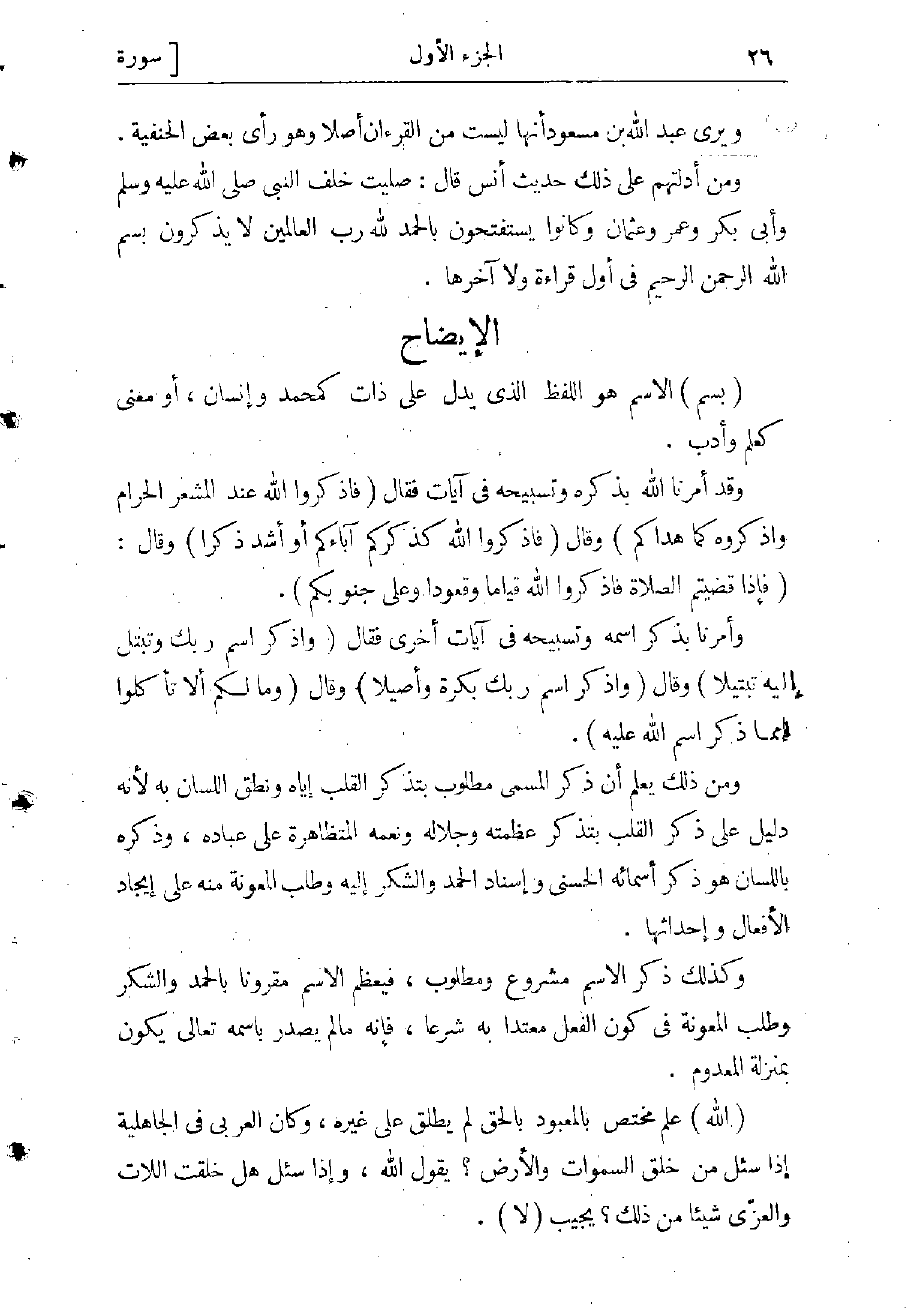 ٢٦ الجزء الأول [ سورة
ويرى عبد الله بن مسعود أنها ليست من القرءان أصلا وهو رأى بعض الحنفية .
ومن أدلتهم على ذلك حديث أنس قال : صليت خلف النبى صلى الله عليه وسلم
وأبى بكر وعمر وعثمان وكانوا يستفتحون بالحمد لله رب العالمين لا يذكرون بسم
الله الرحمن الرحيم فى أول قراءة ولا آخرها .
الإيضاح
( بسم ) الاسم هو اللفظ الذى يدل على ذات كمحمد وإنسان ، أو معنى
كعلم وأدب .
وقد أمرنا الله بذكره وتسبيحه فى آيات فقال ( فاذكروا الله عند المشعر الحرام
واذكروه كما هداكم ) وقال ( فاذكروا الله كذكركم آباءكم أو أشد ذكرا ) وقال :
( فإذا قضيتم الصلاة فاذكروا الله قياما وقعودا وعلى جنوبكم ) .
وأمرنا بذكر اسمه وتسبيحه فى آيات أخرى فقال ( واذكر اسم ربك وتبتل
إليه تبتيلا ) وقال ( واذكر اسم ربك بكرة وأصيلا ) وقال ( وما لكم ألا تأكلوا
مما ذكر اسم الله عليه ) .
ومن ذلك يعلم أن ذكر المسمى مطلوب بتذكر القلب إياه ونطق اللسان به لأنه
دليل على ذكر القلب بتذكر عظمته وجلاله ونعمه المتظاهرة على عباده ، وذكره
باللسان هو ذكر أسمائه الحسنى وإسناد الحمد والشكر إليه وطلب المعونة منه على إيجاد
الأفعال وإحداثها .
وكذلك ذكر الاسم مشروع ومطلوب ، فيعظم الاسم مقرونا بالحمد والشكر
وطلب المعونة فى كون الفعل معتدا به شرعا ، فإنه مالم يصدر باسمه تعالى يكون
بمنزلة المعدوم .
( الله ) علم مختص بالمعبود بالحق لم يطلق على غيره ، وكان العربى فى الجاهلية
إذا سئل من خلق السموات والأرض ؟ يقول الله ، وإذا سئل هل خلقت اللات
والعزّى شيئا من ذلك ؟ يجيب ( لا ) .